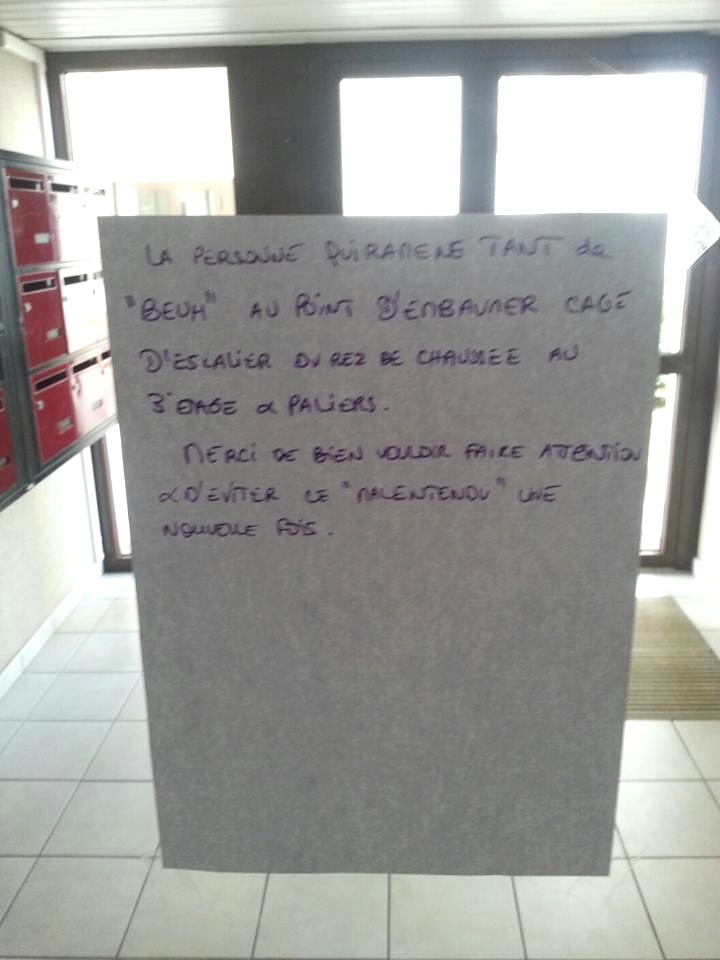 LA PERSONNE QUI RAMENE TANT de
"BEUH" AU POINT D'EMBAUMER CAGE
D'ESCALIER DU REZ DE CHAUSSEE AU
3° ETAGE & PALIERS.
MERCI DE BIEN VOULOIR FAIRE ATTENTION
& D'EVITER CE "MALENTENDU" UNE
NOUVELLE FOIS.